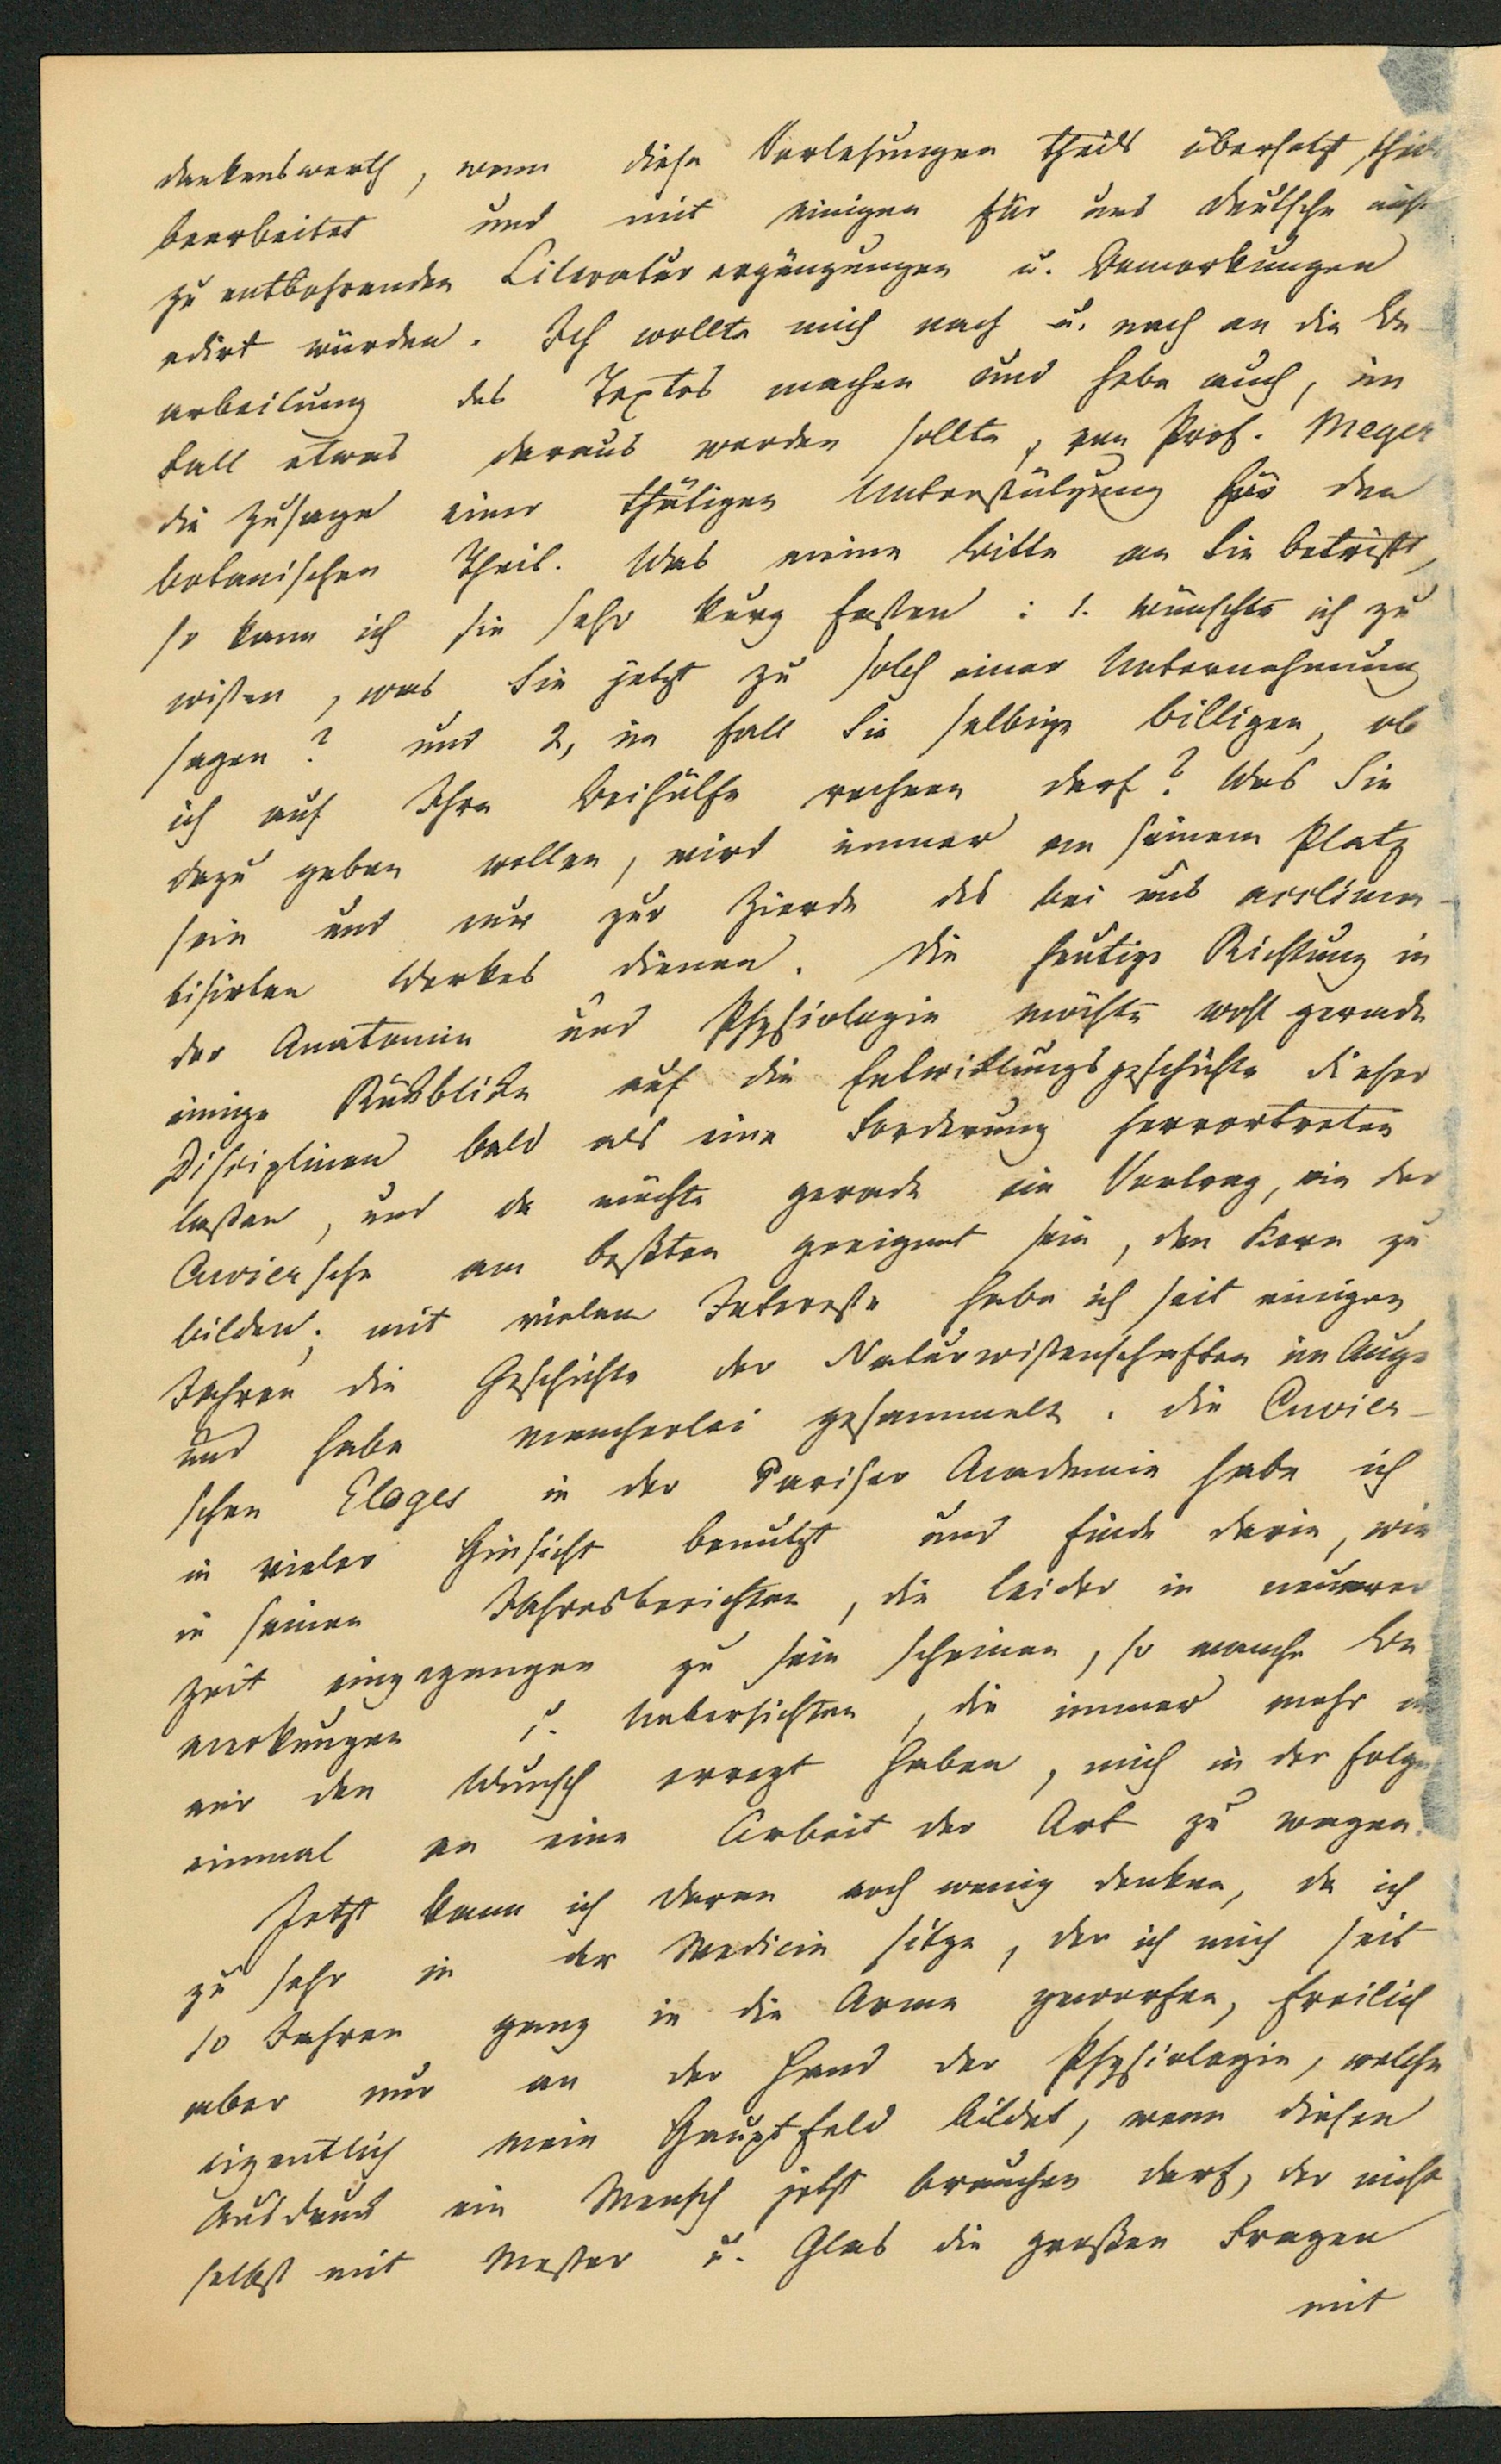 dankenswerth, wenn diese Vorlesungen theils übersetzt, theils
bearbeitet und mit einigen für uns Deutsche nicht
zu entbehrenden Literaturergänzungen u. Bemerkungen
edirt würden. Ich wollte mich nach u. nach an die Be-
arbeitung des Textes machen und habe auch, im
Fall etwas daraus werden sollte, von Prof. Meyer
die Zusage einer thätigen Unterstützung für den
botanischen Theil. Was meine Bitte an Sie betrifft,
so kann ich sie sehr kurz fassen: 1. wünschte ich zu
wissen, was Sie jetzt zu solch einer Unternehmung
sagen? und 2, im Fall Sie selbige billigen, ob
ich auf Ihre Beihülfe rechnen darf? Was Sie
dazu geben wollen, wird immer an seinem Platz
sein und nur zur Zierde des bei uns acclima-
tisirten Werkes dienen. Die heutige Richtung in
der Anatomie und Physiologie möchte wohl gerade
einige Rückblicke auf die Entwicklungsgeschichte dieser
Disciplinen bald als eine Forderung hervortreten
lassen, und da möchte gerade ein Vortrag, wie der
Cuviersche am beßten geeignet sein, den Kern zu
bilden; mit vielem Interesse habe ich seit einigen
Jahren die Geschichte der Naturwissenschaften im Auge
und habe mancherlei gesammelt. Die Cuvier-
schen Eloges in der Pariser Academie habe ich
in vieler Hinsicht benutzt und finde darin, wie
in seinen Jahresberichten, die leider in neuerer
Zeit eingegangen zu sein scheinen, so manche Be-
merkungen u. Uebersichten, die immer mehr in
mir den Wunsch erregt haben, mich in der Folge
einmal an eine Arbeit der Art zu wagen.
Jetzt kann ich daran noch wenig denken, da ich
zu sehr in der Medicin sitze, der ich mich seit
10 Jahren ganz in die Arme geworfen, freilich
aber nur an der Hand der Physiologie, welche
eigentlich mein Hauptfeld bildet, wenn diesen
Ausdruck ein Mensch jetzt brauchen darf, der nicht
selbst mit Messer u. Glas die großen Fragen
mit